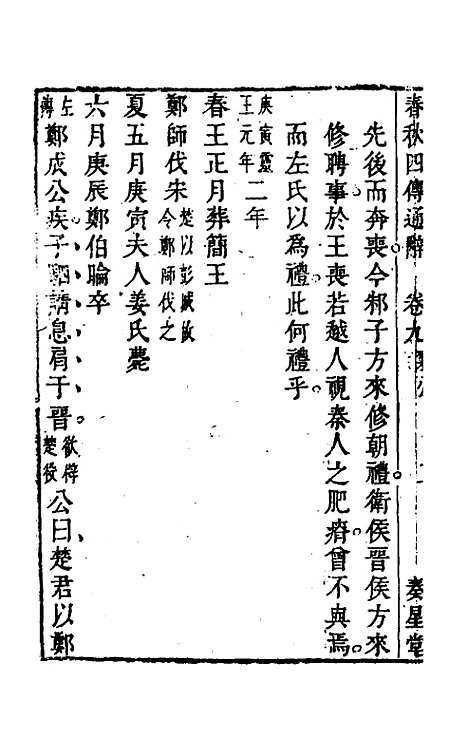 春秋四傳通辭 卷九 襄公 奏星堂
先後而奔喪今邾子方來修朝禮衛侯晉侯方來
修聘事於王喪若越人視秦人之肥瘠曾不與焉
而左氏以爲禮此何禮乎
庚寅靈
王元年
二年
春王正月葬簡王
鄭師伐宋
楚以彭城故
令鄭師伐之
夏五月庚寅夫人姜氏薨
六月庚辰鄭伯睔卒
左
傳
鄭成公疾子駟請息肩于晉
欲辟
楚役
公曰楚君以鄭